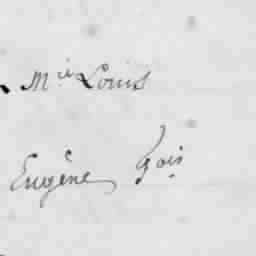 Mie Louis
Eugène Gois